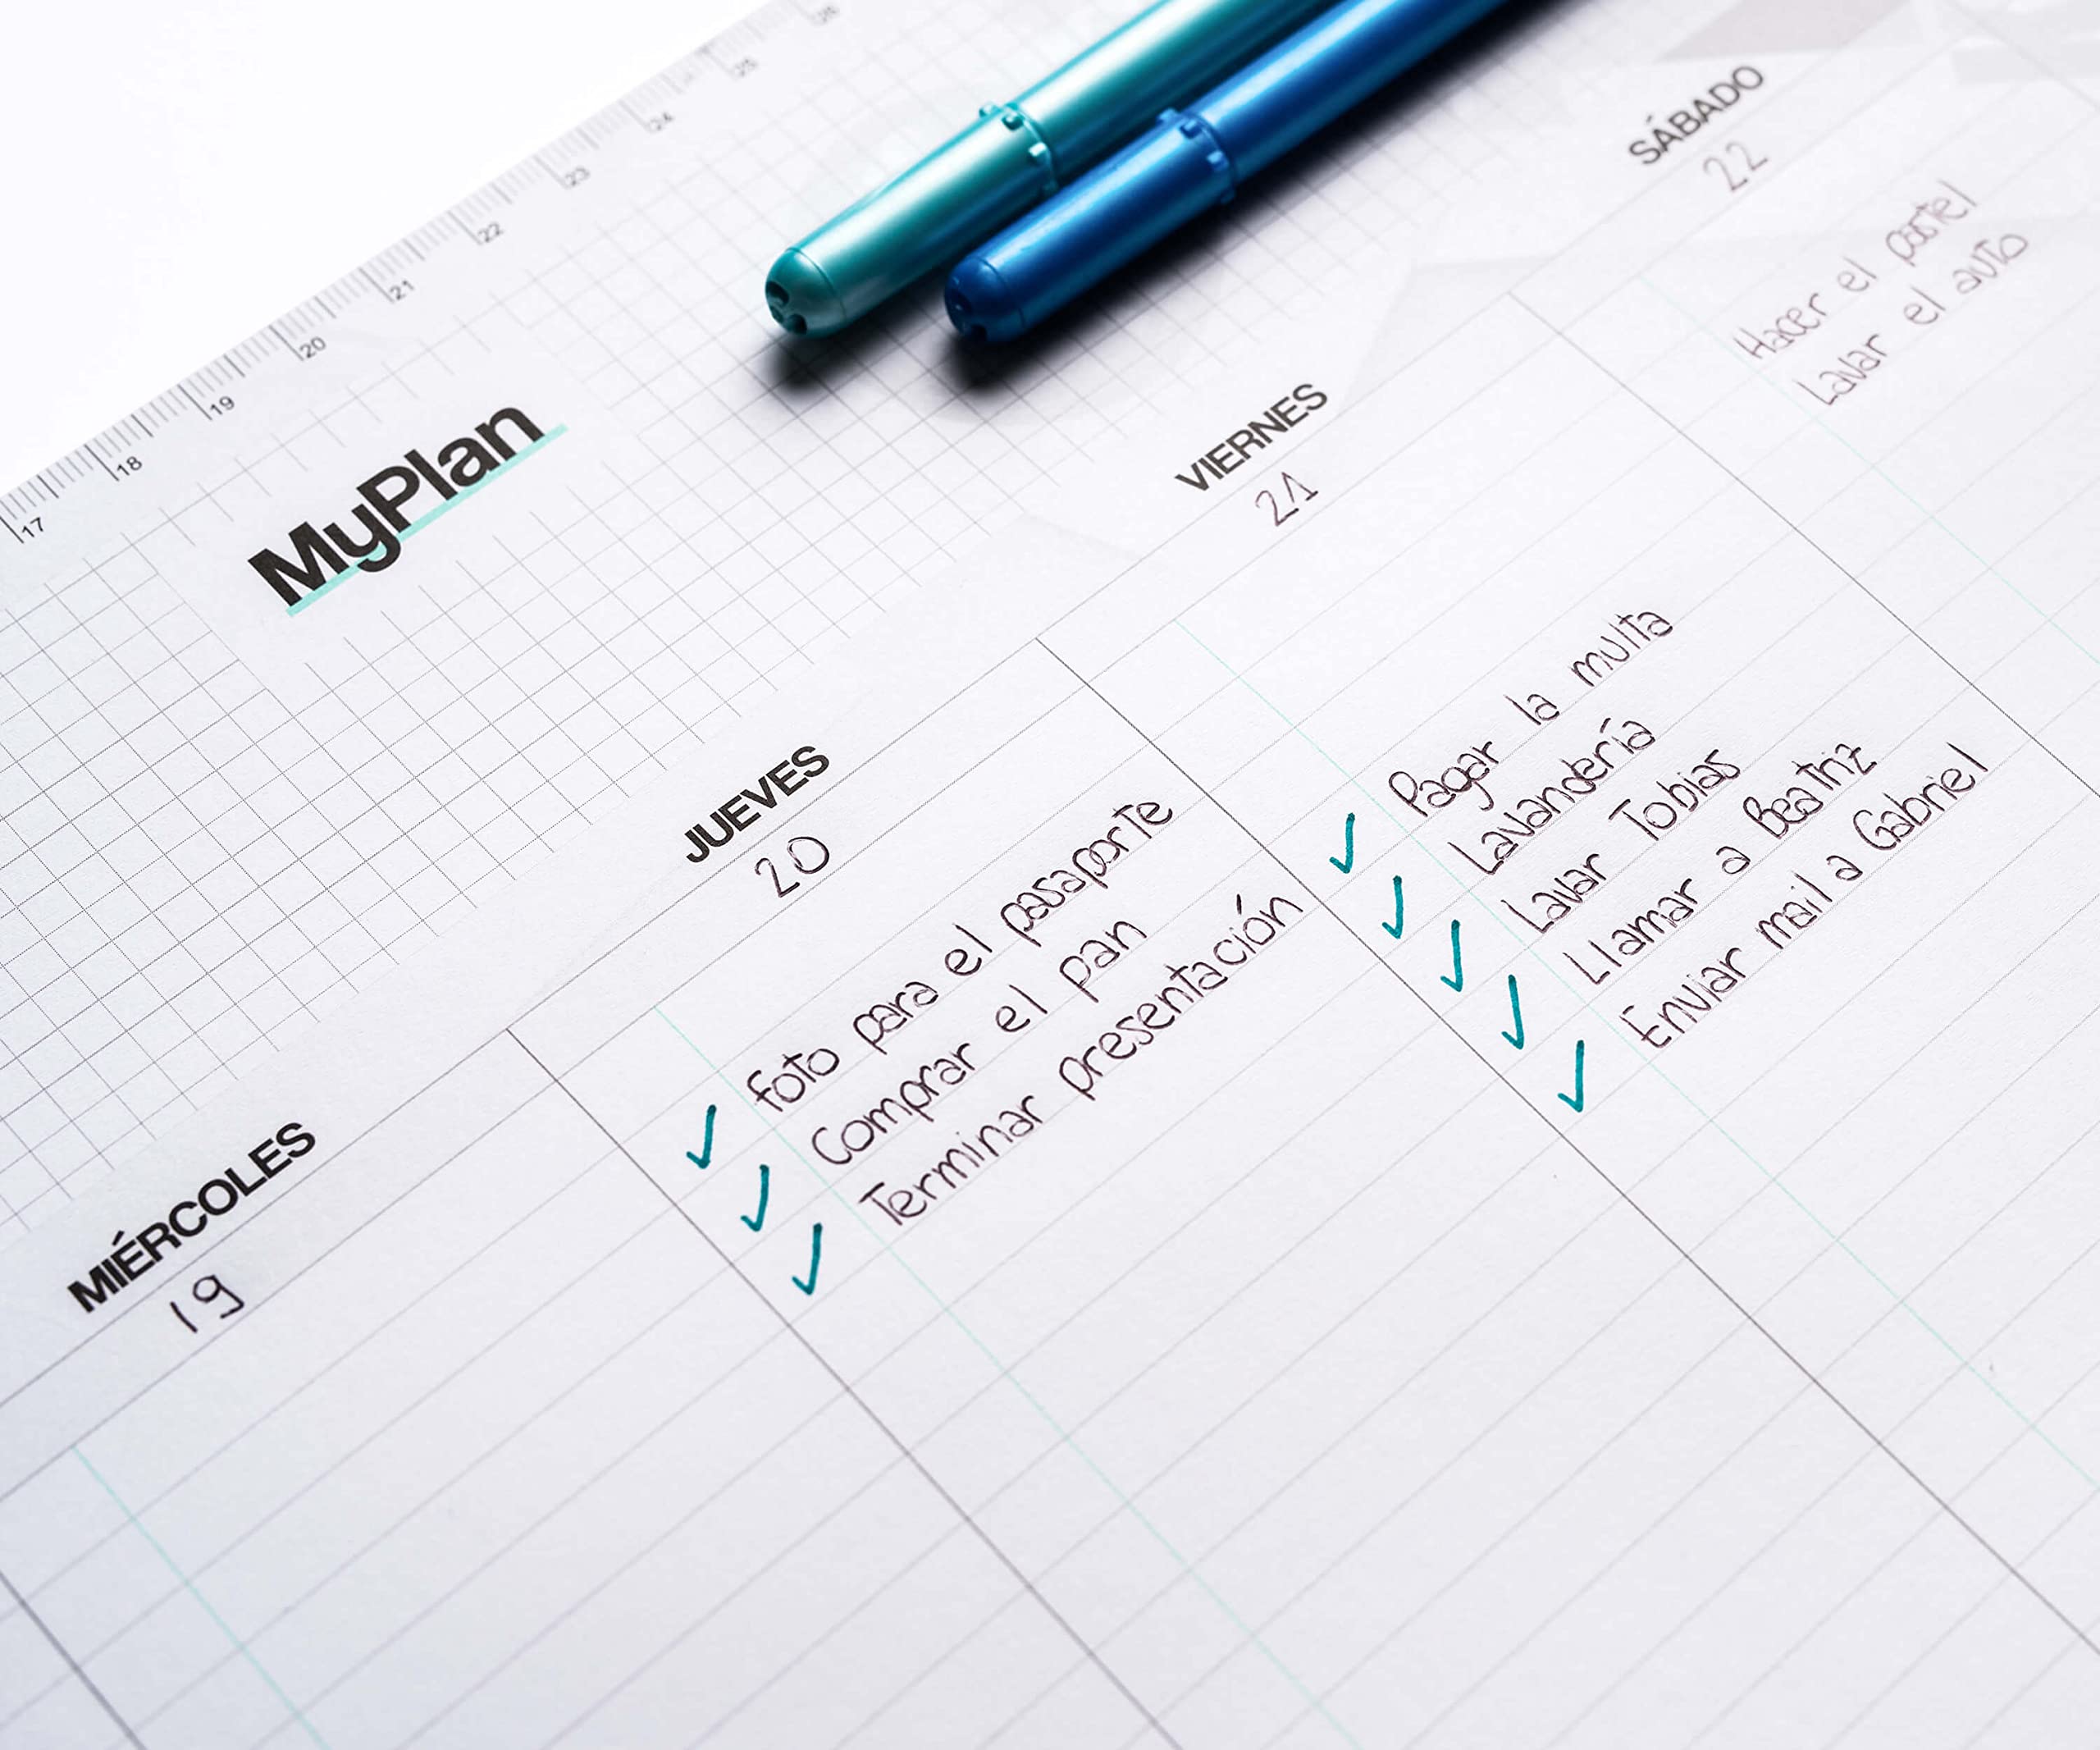 17 18 19 20 21 22 23 24 25 26
MyPlan
MIÉRCOLES
19
JUEVES
20
foto para el pasaporte
Comprar el pan
Terminar presentación
VIERNES
21
Pagar la multa
Lavandería
Lavar Tobias
Llamar a Beatriz
Enviar mail a Gabriel
SÁBADO
22
Hacer el pastel
Lavar el auto